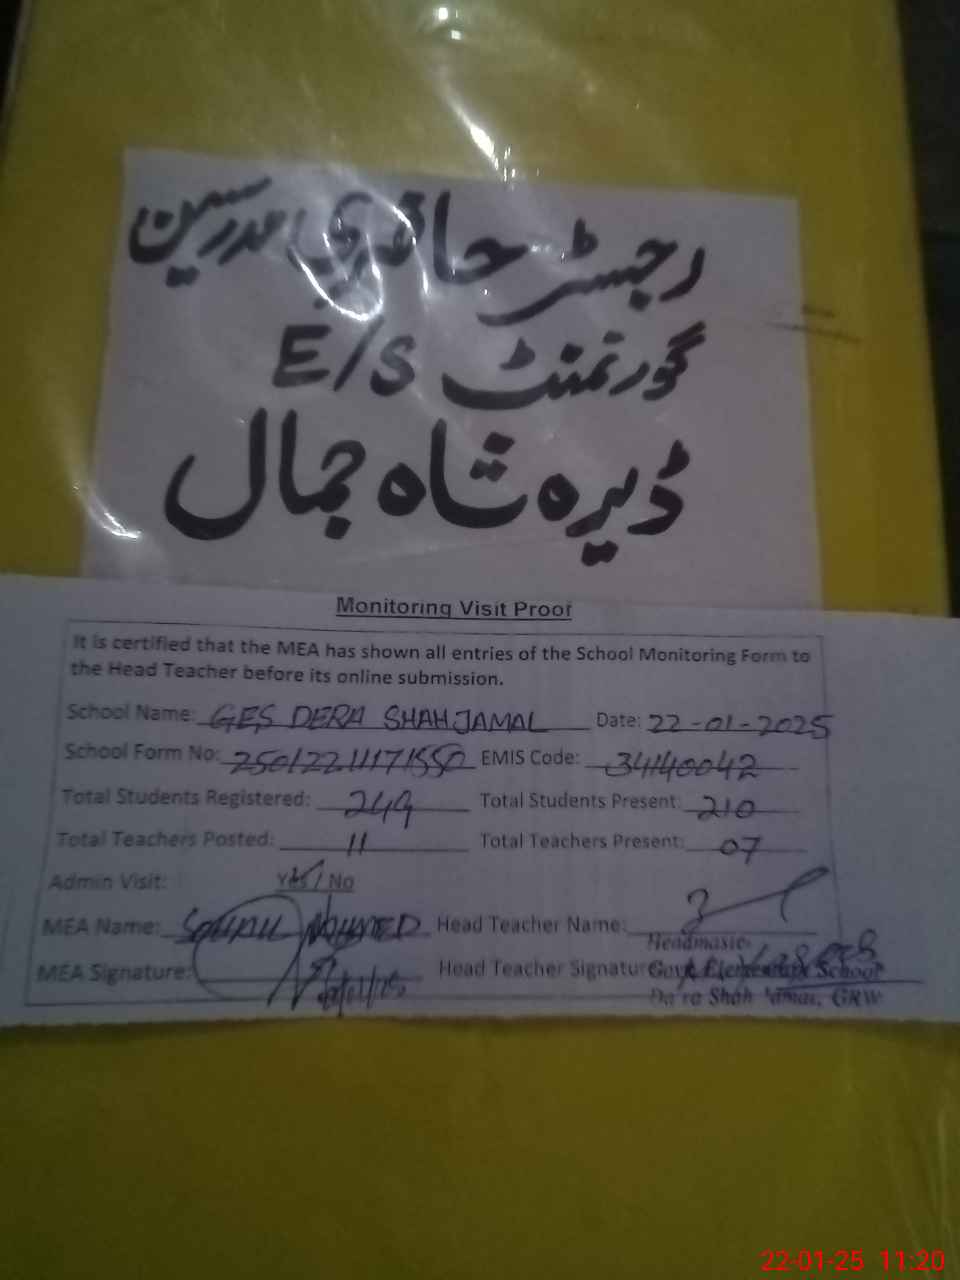 رجسٹر حاضری مدرسین
گورنمنٹ E/S
ڈیرہ شاہ جمال
Monitoring Visit Proof
It is certified that the MEA has shown all entries of the School Monitoring Form to
the Head Teacher before its online submission.
School Name: GES DERA SHAH JAMAL Date: 22-01-2025
School Form No: EMIS Code: 34140042
Total Students Registered: 249 Total Students Present: 210
Total Teachers Posted: 11 Total Teachers Present: 07
Admin Visit: Yes / No
MEA Name: Head Teacher Name:
Headmaster
MEA Signature: Head Teacher Signature: Govt. Elementary School
Shah Jamal, GRW
22-01-25 11:20